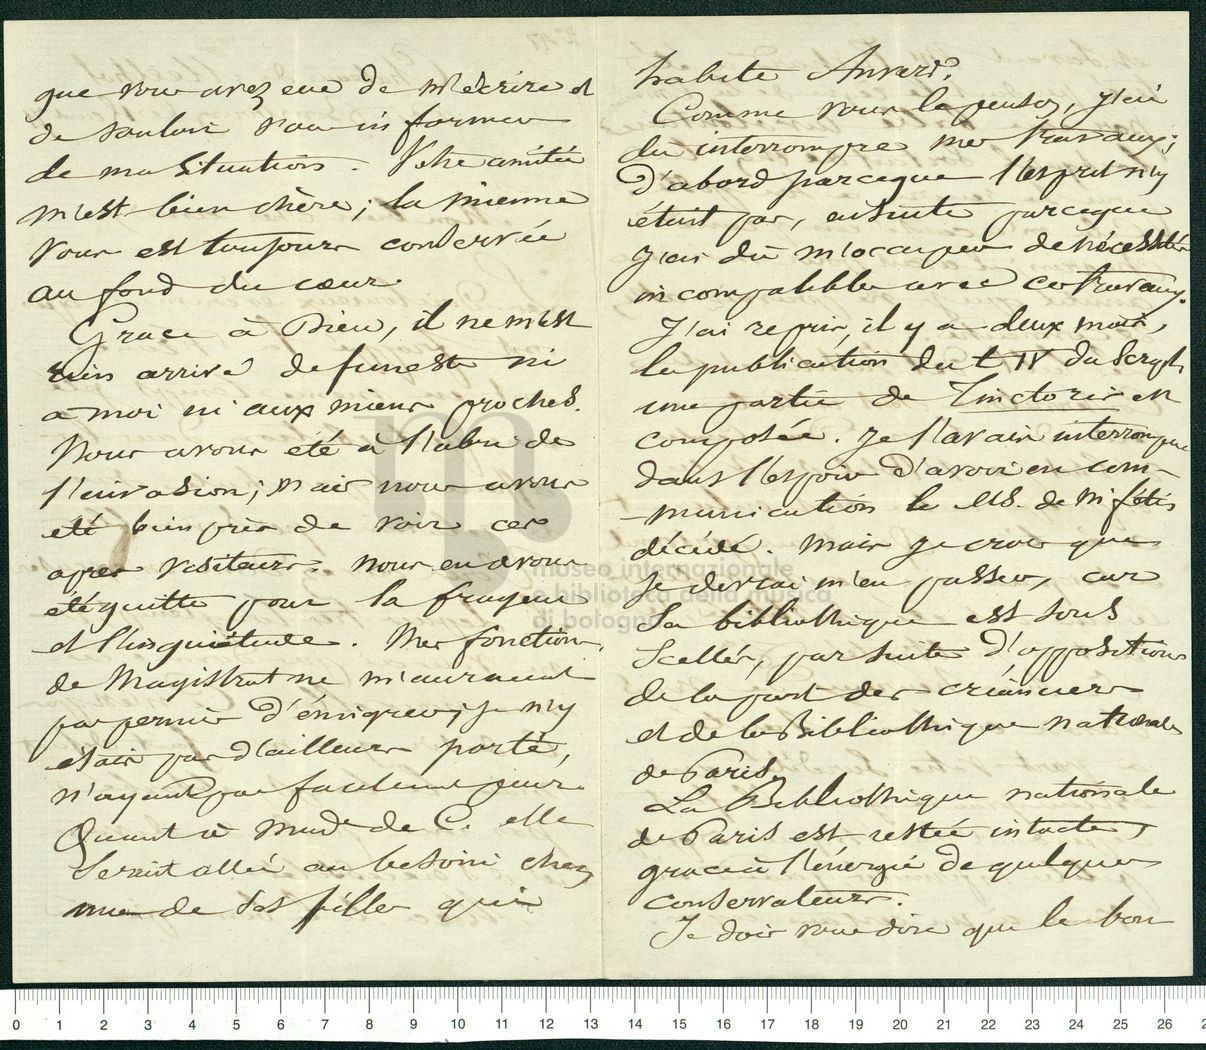 que vous avez eue de m'écrire et
de vouloir vous informer
de ma situation. Votre amitié
m'est bien chère; la mienne
vous est toujours conservée
au fond du cœur.
Grace à Dieu, il ne m'est
rien arrivé de funeste ni
a moi ni aux miens proches.
Nous avons été à l'abri de
l'invasion; mais nous avons
été bien près de voir ces
apres visiteurs. Nous en avons
été quitte pour la frayeur
et l'inquiétude. Mes fonctions
de Magistrat ne m'auraient
pas permis d'émigrer; je n'y
étais pas d'ailleurs porté,
n'ayant pas facilement peur.
Quant à Mad.e de C. elle
serait allée au besoin chez
une de ses filles qui
habite Anvers.
Comme vous le pensez, j'ai
du interrompre mes travaux;
d'abord parceque l'esprit n'y
était pas, ensuite parceque
j'ai du m'occuper de nécessités
incompatibles avec ces travaux.
J'ai repris, il y a deux mois,
la publication du t IV du Script.
une partie de Tinctoris est
composée. Je l'avais interrompue
dans l'espoir d'avoir en com-
munication le MS. de M fétis
décédé. Mais je crois que
je devrai m'en passer, car
sa bibliothèque est sous
scellés, par suite d'opposition
de la part des créanciers
et de la Bibliothèque nationale
de Paris.
La Bibliothèque nationale
de Paris est restée intacte,
grace à l'énergie de quelques
conservateurs.
Je dois vous dire que le bon
museo internazionale
e biblioteca della musica
di bologna
0 1 2 3 4 5 6 7 8 9 10 11 12 13 14 15 16 17 18 19 20 21 22 23 24 25 26